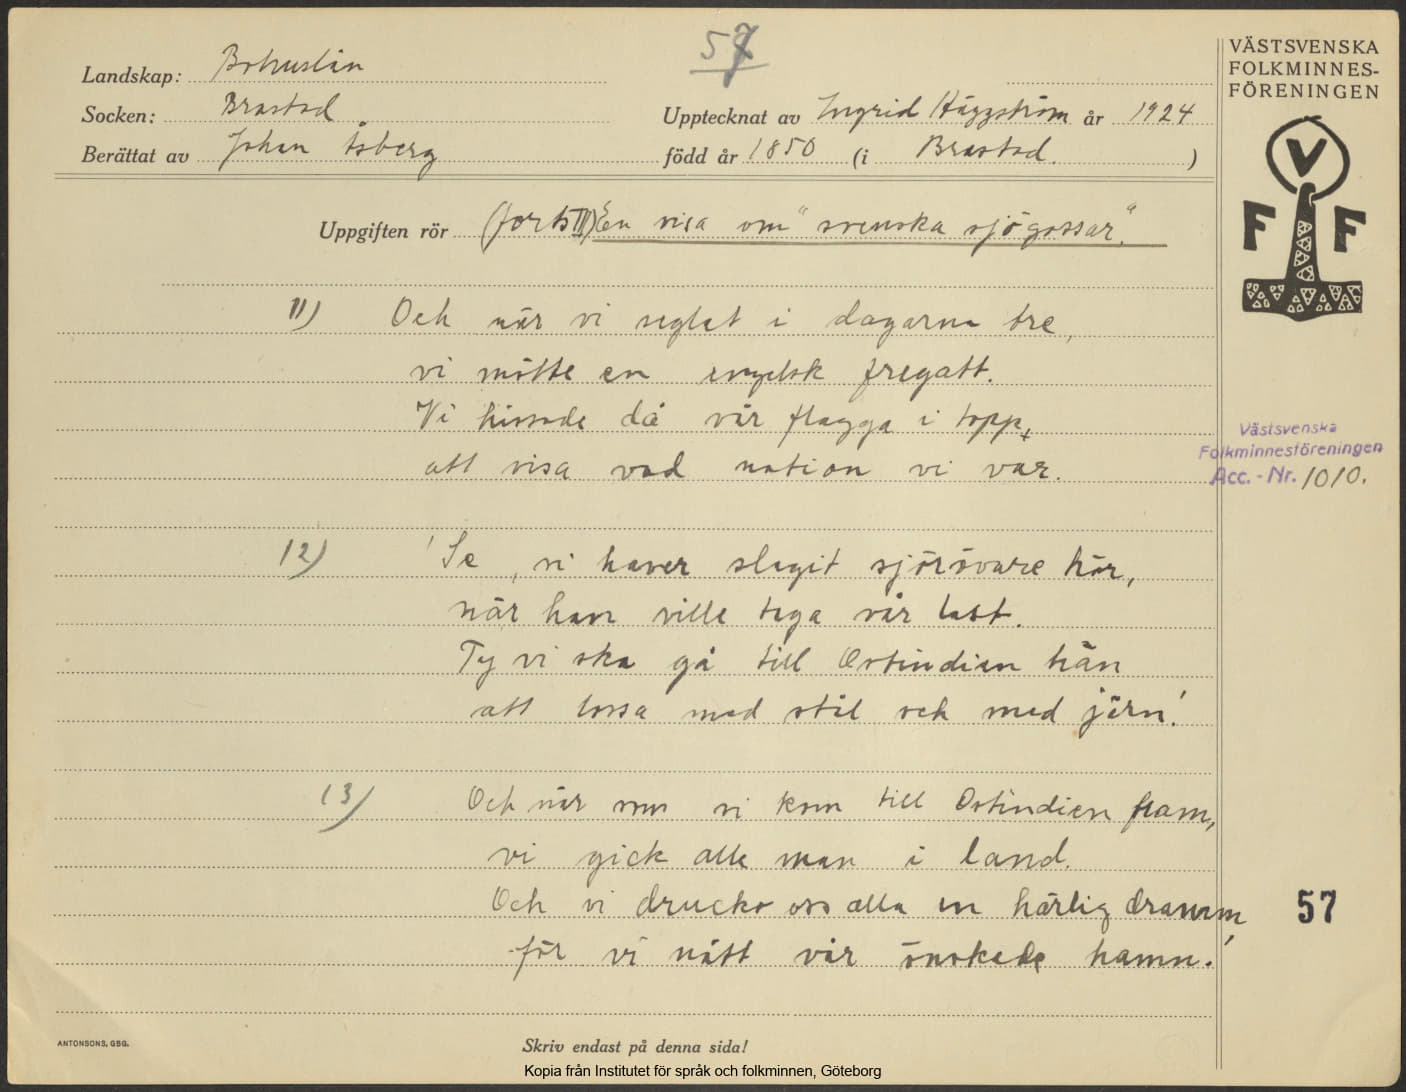 57
Landskap: Bohuslän
Socken: Brastad
Berättat av Johan Åsberg
Upptecknat av Ingrid Häggström år 1924
född år 1850 (i Brastad. )
VÄSTSVENSKA
FOLKMINNES-
FÖRENINGEN
V
F F
Uppgiften rör (forts III) En visa om "svenska sjögossar".
11) Och när vi seglat i dagarna tre,
vi mötte en engelsk fregatt.
Vi hissade då vår flagga i topp,
att visa vad nation vi var.
Västsvenska
Folkminnesföreningen
Acc. - Nr. 1010.
12) 'Se, vi haver slagit sjörövare här,
när han ville taga vår last.
Ty vi ska gå till Ostindien hän
att lossa med stål och med järn!'
13) Och när som vi kom till Ostindien fram,
vi gick alle man i land.
Och vi drucko oss alla en härlig dramm,
för vi nått vår önskade hamn.
57
ANTONSONS, GBG.
Skriv endast på denna sida!
Kopia från Institutet för språk och folkminnen, Göteborg